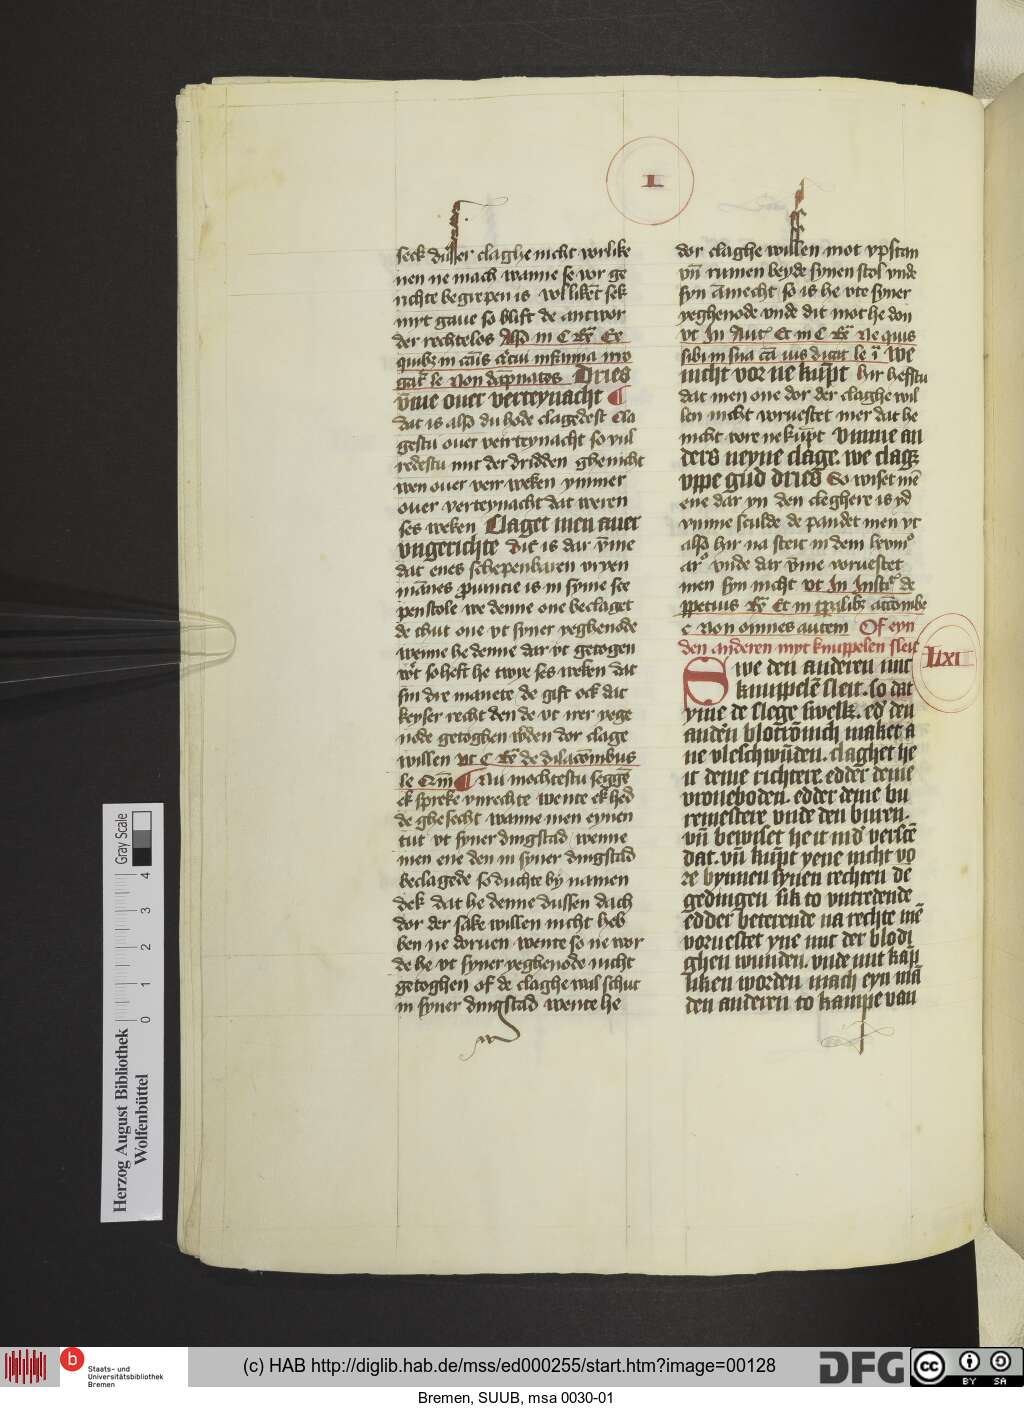 I
seck disser claghe nicht vorlike
nen ne mach wanne se vor ge
richte begrepen is wil likēt sek
myt gaue so blift de antwor
der rechtelos Also in C Ex
quibꝫ in cāis
le Non dāpnatos Dries
v̄me ouer verteynacht ¶
dat is also du hode clagedest Cla
gestu ouer veirteynacht so vul
redestu mit der dridden ghe nicht
wen ouer veir weken ymmer
ouer verteynacht dat weren
ses weken Claget men auer
vngerichte dit is dar v̄me
dat enes schepenbaren vryen
mānes puncte is in syme sce
penstole we denne one beclaget
de thut one vt syner yeghenode
wenne he denne dar vt getogen
so heft he twye ses weken dat
sin dre manete de gift ock dat
keyser recht den de vt irer yege
node getoghen wden dor clage
willen vt C de dilacōnibus
le ¶ Nu mochtestu seggē
ek spreke vnrechte wente ek hed
de ghesecht wanne men eynen
tut vt syner dingstad wenne
men ene den in syner dingstad
beclagede so duchte by namen
dek dat he denne dussen dach
dor der sake willen nicht heb
ben ne doruen wente so ne wor
de he vt syner yeghenode nicht
getoghen of de claghe wil schut
in syner dingstad wente he
dor claghe willen mot vpstan
vn̄ rumen beyde synen stol vnde
syn āmecht so is he vte syner
yeghenode vnde dit mot he don
vt In Aut Et in C Ne quis
sibi in sua cā ius dicat le i We
nicht vor ne kūpt hir hefstu
dat men one dor der claghe wil
len nicht vorvestet mer dat he
nicht vore ne kūpt vmme an
ders neyne clage. we clagꝫ
vppe gud dries So wiset mē
ene dar yn den cleghere is yd
vmme sculde de pandet men vt
also hir na steit in dem
vnde dar v̄me vorvestet
men syn nicht vt In de
Et in
c Non omnes autem Of eyn
den anderen myt knuppelen sleit
Lixi
Swe den anderen mit
knuppelē sleit. so dat
yme de slege swelle. edder den
anderen maket a
ne vleschwūden. claghet he
it deme richtere. edder deme
vroneboden. edder deme bu
remestere vnde den buren.
vn̄ bewiset he it
dat. vn̄ kūpt yene nicht vo
re bynnen synen rechten de
gedingen sik to vntredende
edder beterende na rechte mē
vorvestet yne mit der blodi
ghen wunden. vnde mit kāp
liken worden mach eyn mā
den anderen to kampe van
Herzog August Bibliothek
Wolfenbüttel
0 1 2 3 4
Gray Scale
b
Staats- und
Universitätsbibliothek
Bremen
(c) HAB http://diglib.hab.de/mss/ed000255/start.htm?image=00128
DFG
cc
BY SA
Bremen, SUUB, msa 0030-01